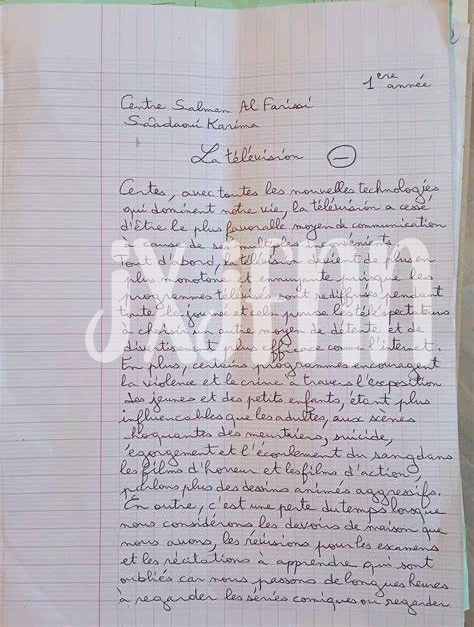 1ere année
Centre Salman Al Farissi
Saâdaoui Karima
La télévision -
Certes, avec toutes les nouvelles technologies
qui dominent notre vie, la télévision a cessé
d'être le plus favorable moyen de communication
à cause de ses multiples inconvénients.
Tout d'abord, la télévision devient de plus en
plus monotone et ennuyante puisque les
programmes télévisés sont rediffusés pendant
toute la journée et cela pousse les téléspectateurs
à choisir un autre moyen de détente et de
divertissement plus efficace comme l'internet.
En plus, certains programmes encouragent
la violence et le crime à travers l'exposition
des jeunes et des petits enfants, étant plus
influençables que les adultes, aux scènes
choquantes des meurtriers, suicide,
l'égorgement et l'écoulement du sang dans
les films d'horreur et les films d'action,
parlons plus des dessins animés aggressifs.
En outre, c'est une perte du temps lorsque
nous considérons les devoirs de maison que
nous avons, les révisions pour les examens
et les récitations à apprendre qui sont
oubliés car nous passons de longues heures
à regarder les séries comiques ou regarder
jxjFmn